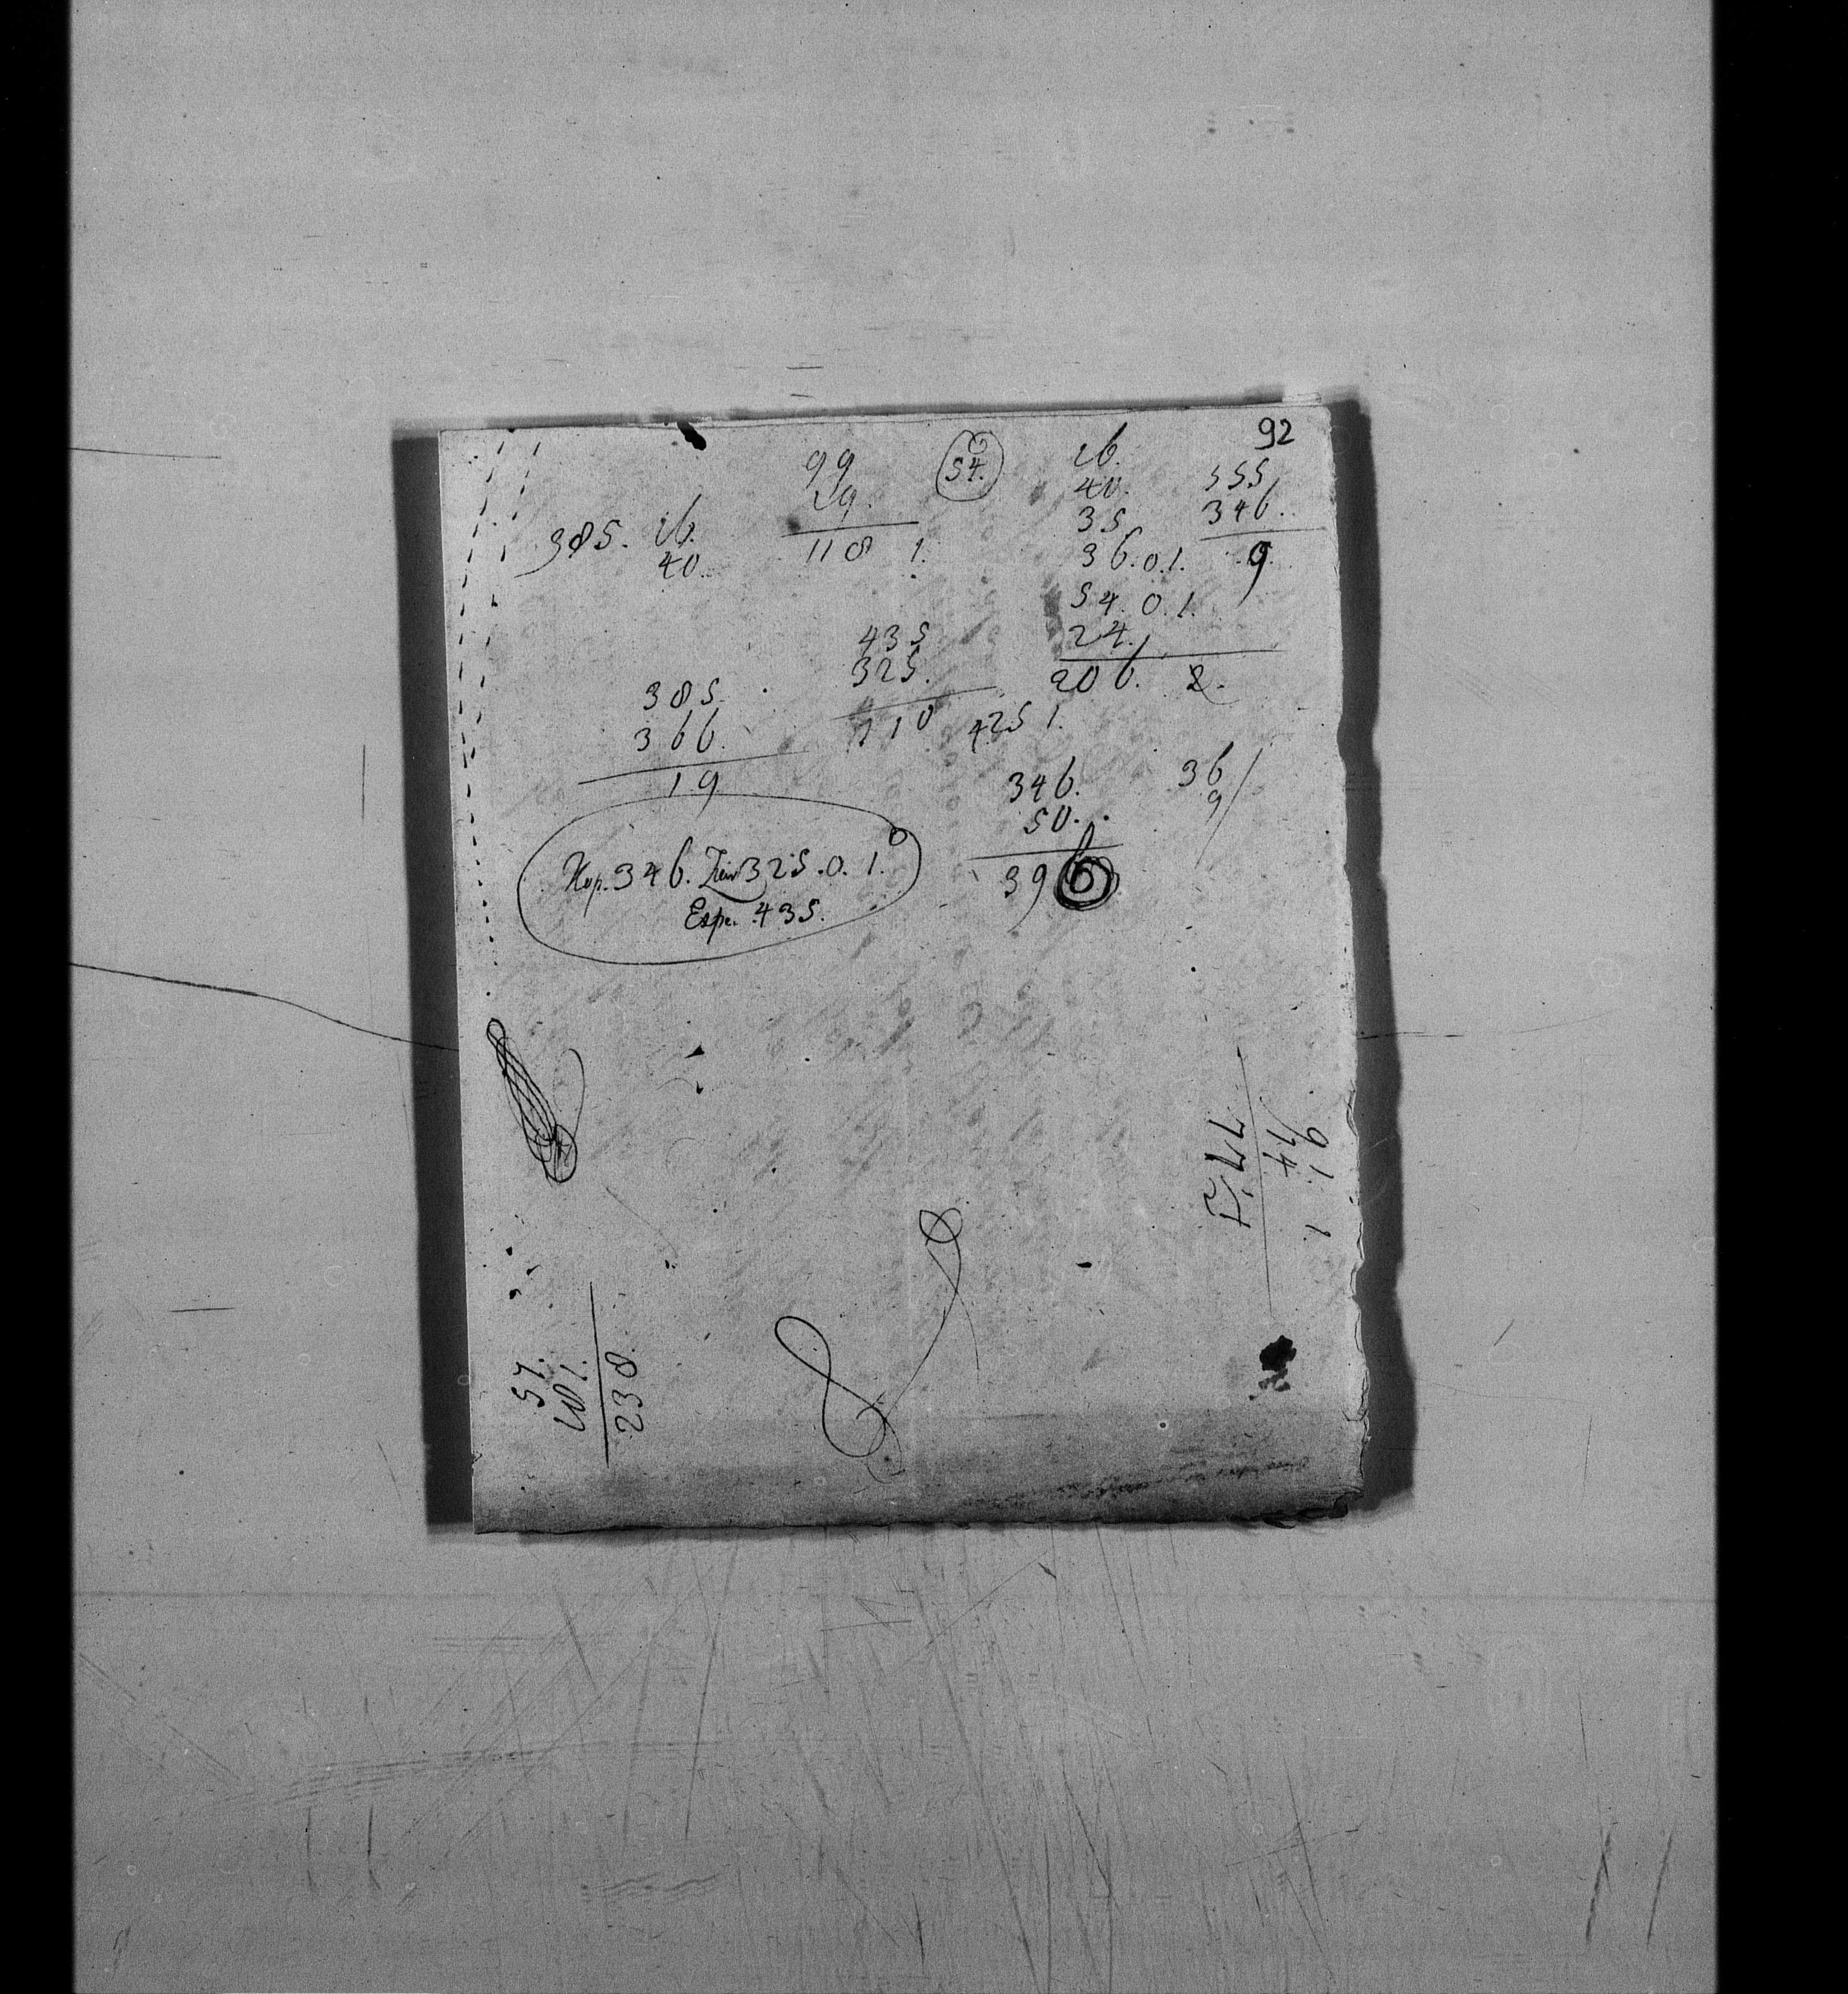 92
99
29.
118 1.
54.
26.
40.
35
36.0.1.
54.0.1.
24.
206. 2.
355
346.
9.
385. 26.
40.
435
325.
110 425 1.
385.
366.
19
346.
50.
396
36
9
Hop. 346. 325.0.1.
Espe. 435.
91. 1.
14
77
57.
230.